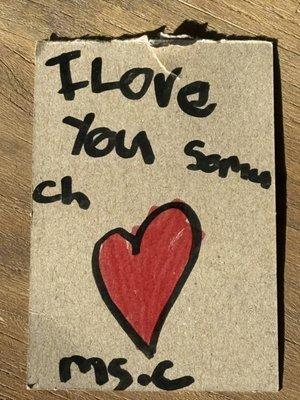 I Love
You Somu
ch
ms.c